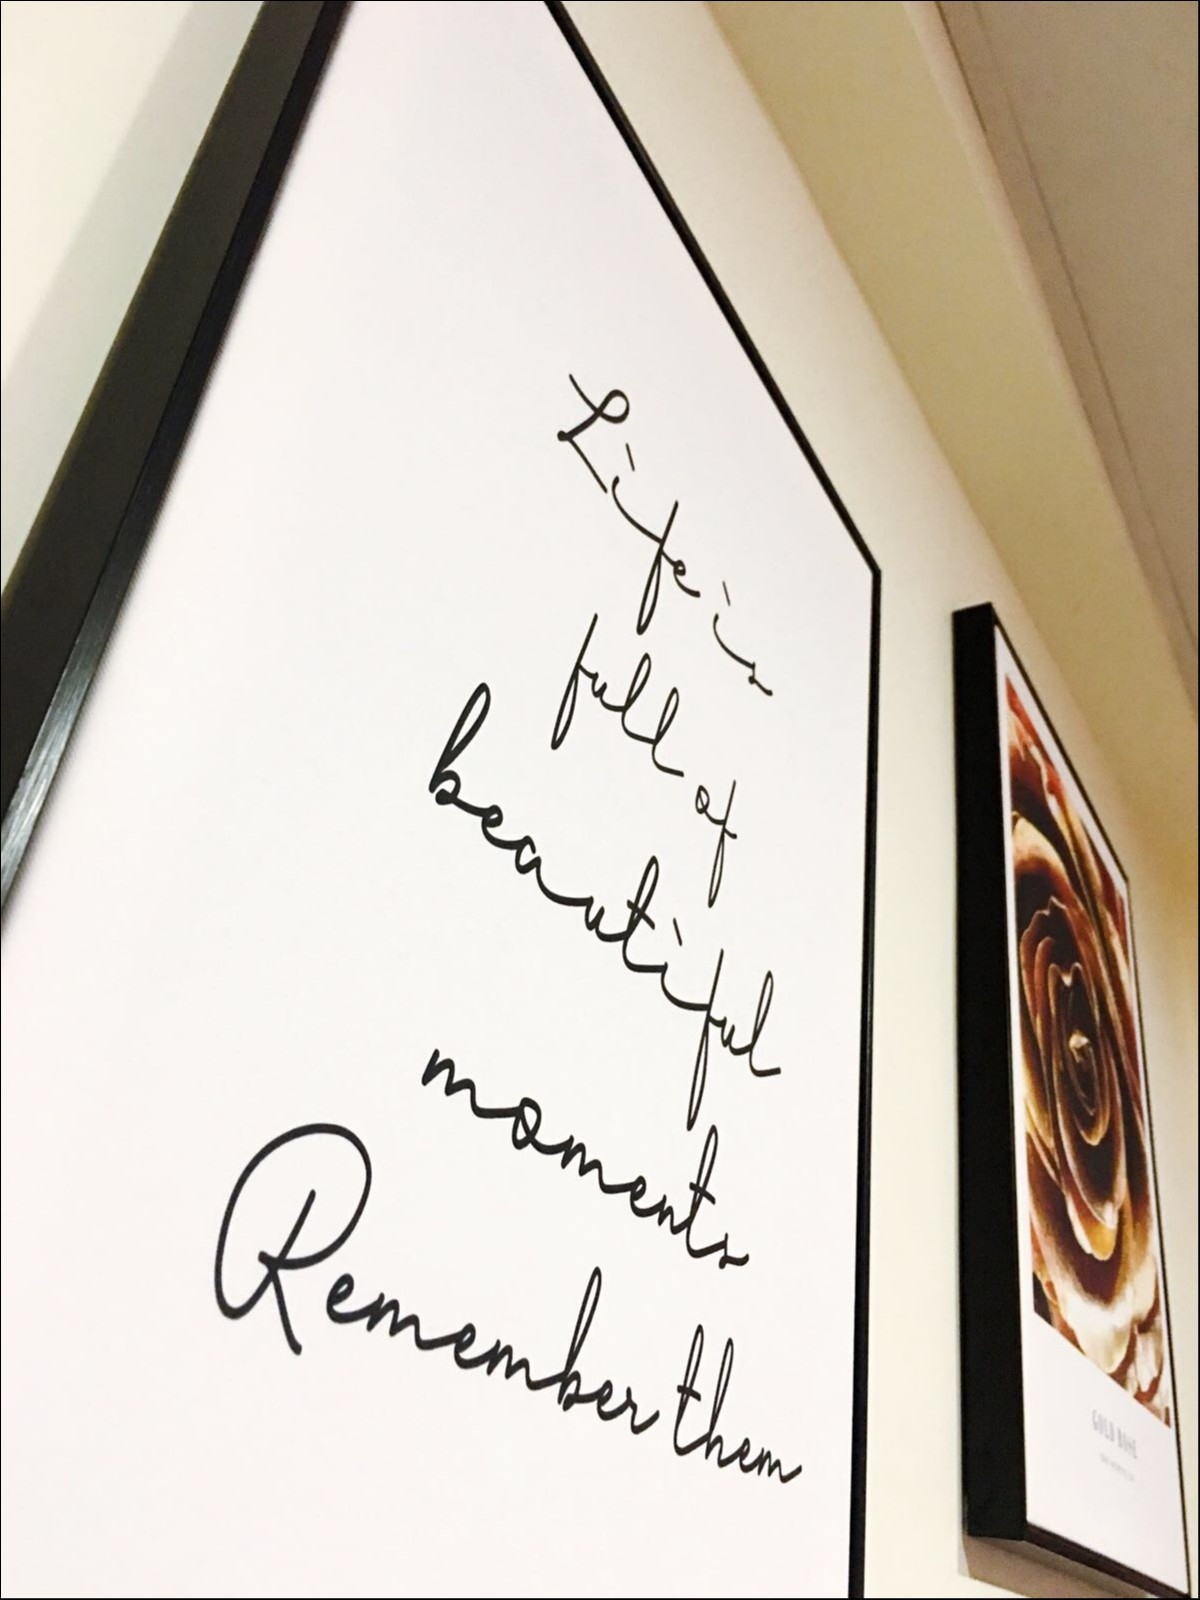 Life is
full of
beautiful
moments
Remember them
GOLD ROSE